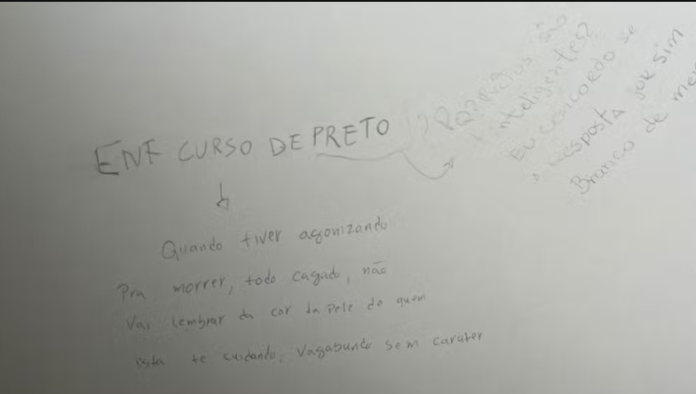 ENF CURSO DE PRETO
Quando tiver agonizando
Pra morrer, todo cagado, não
Vai lembrar da cor da pele do quem
esta te cuidando, Vagabundo sem carater
?? Pq Pretos são
inteligentes?
Eu concordo se
a resposta for sim
Branco de mer